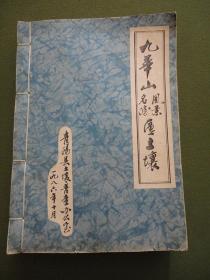 九華山风景名胜区土壤
青阳县土壤普查办公室
一九八六年十月